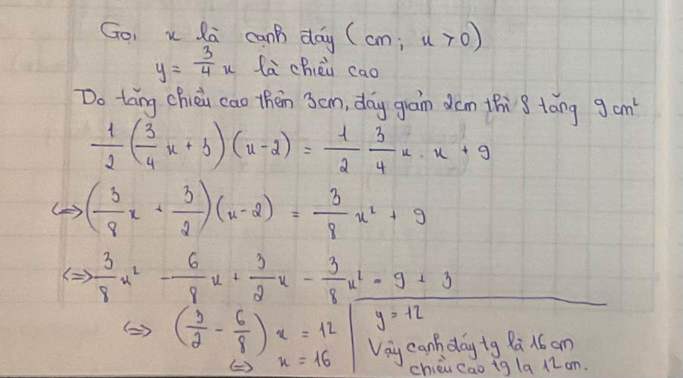 Gọi x là cạnh đáy (cm; x > 0)
y = 3/4 x là chiều cao
Do tăng chiều cao thêm 3cm, đáy giảm 2cm thì S tăng 9cm²
1/2 (3/4 x + 3) (x - 2) = 1/2 3/4 x . x + 9
<=> (3/8 x + 3/2) (x - 2) = 3/8 x² + 9
<=> 3/8 x² - 6/8 x + 3/2 x - 3/8 x² = 9 + 3
<=> (3/2 - 6/8) x = 12
<=> x = 16
y = 12
Vậy cạnh đáy tg là 16cm
chiều cao tg là 12cm.